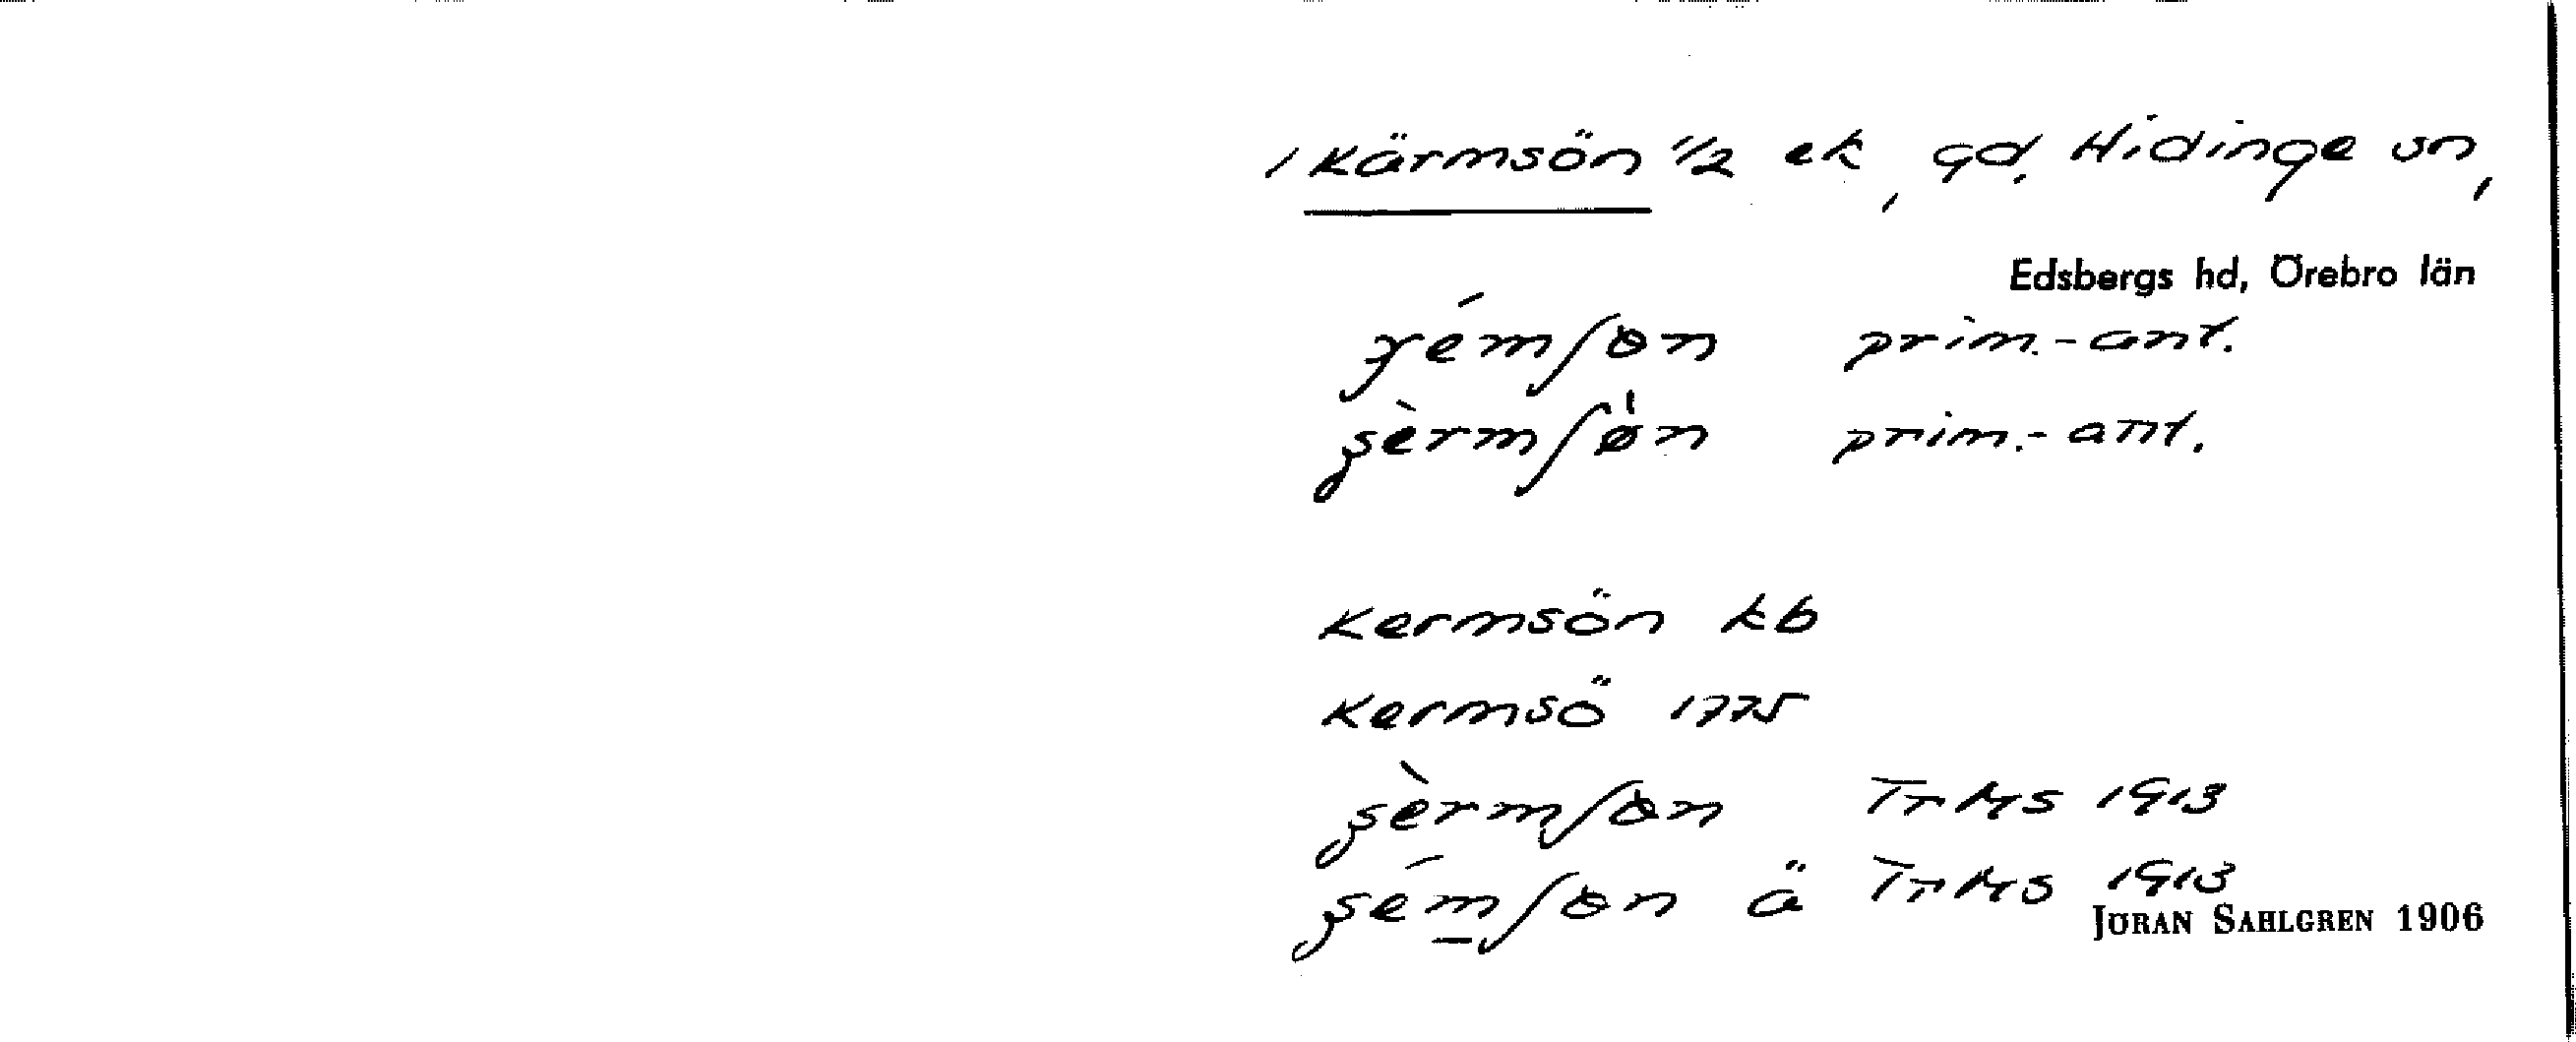 Kärmsön 1/2 ek, gd. Hidinge sn,
Edsbergs hd, Örebro län
prim.-ant.
prim.-ant.
Kermsön kb
Kermsö 1775
TrMS 1913
ä TrMS 1913
JÖRAN SAHLGREN 1906